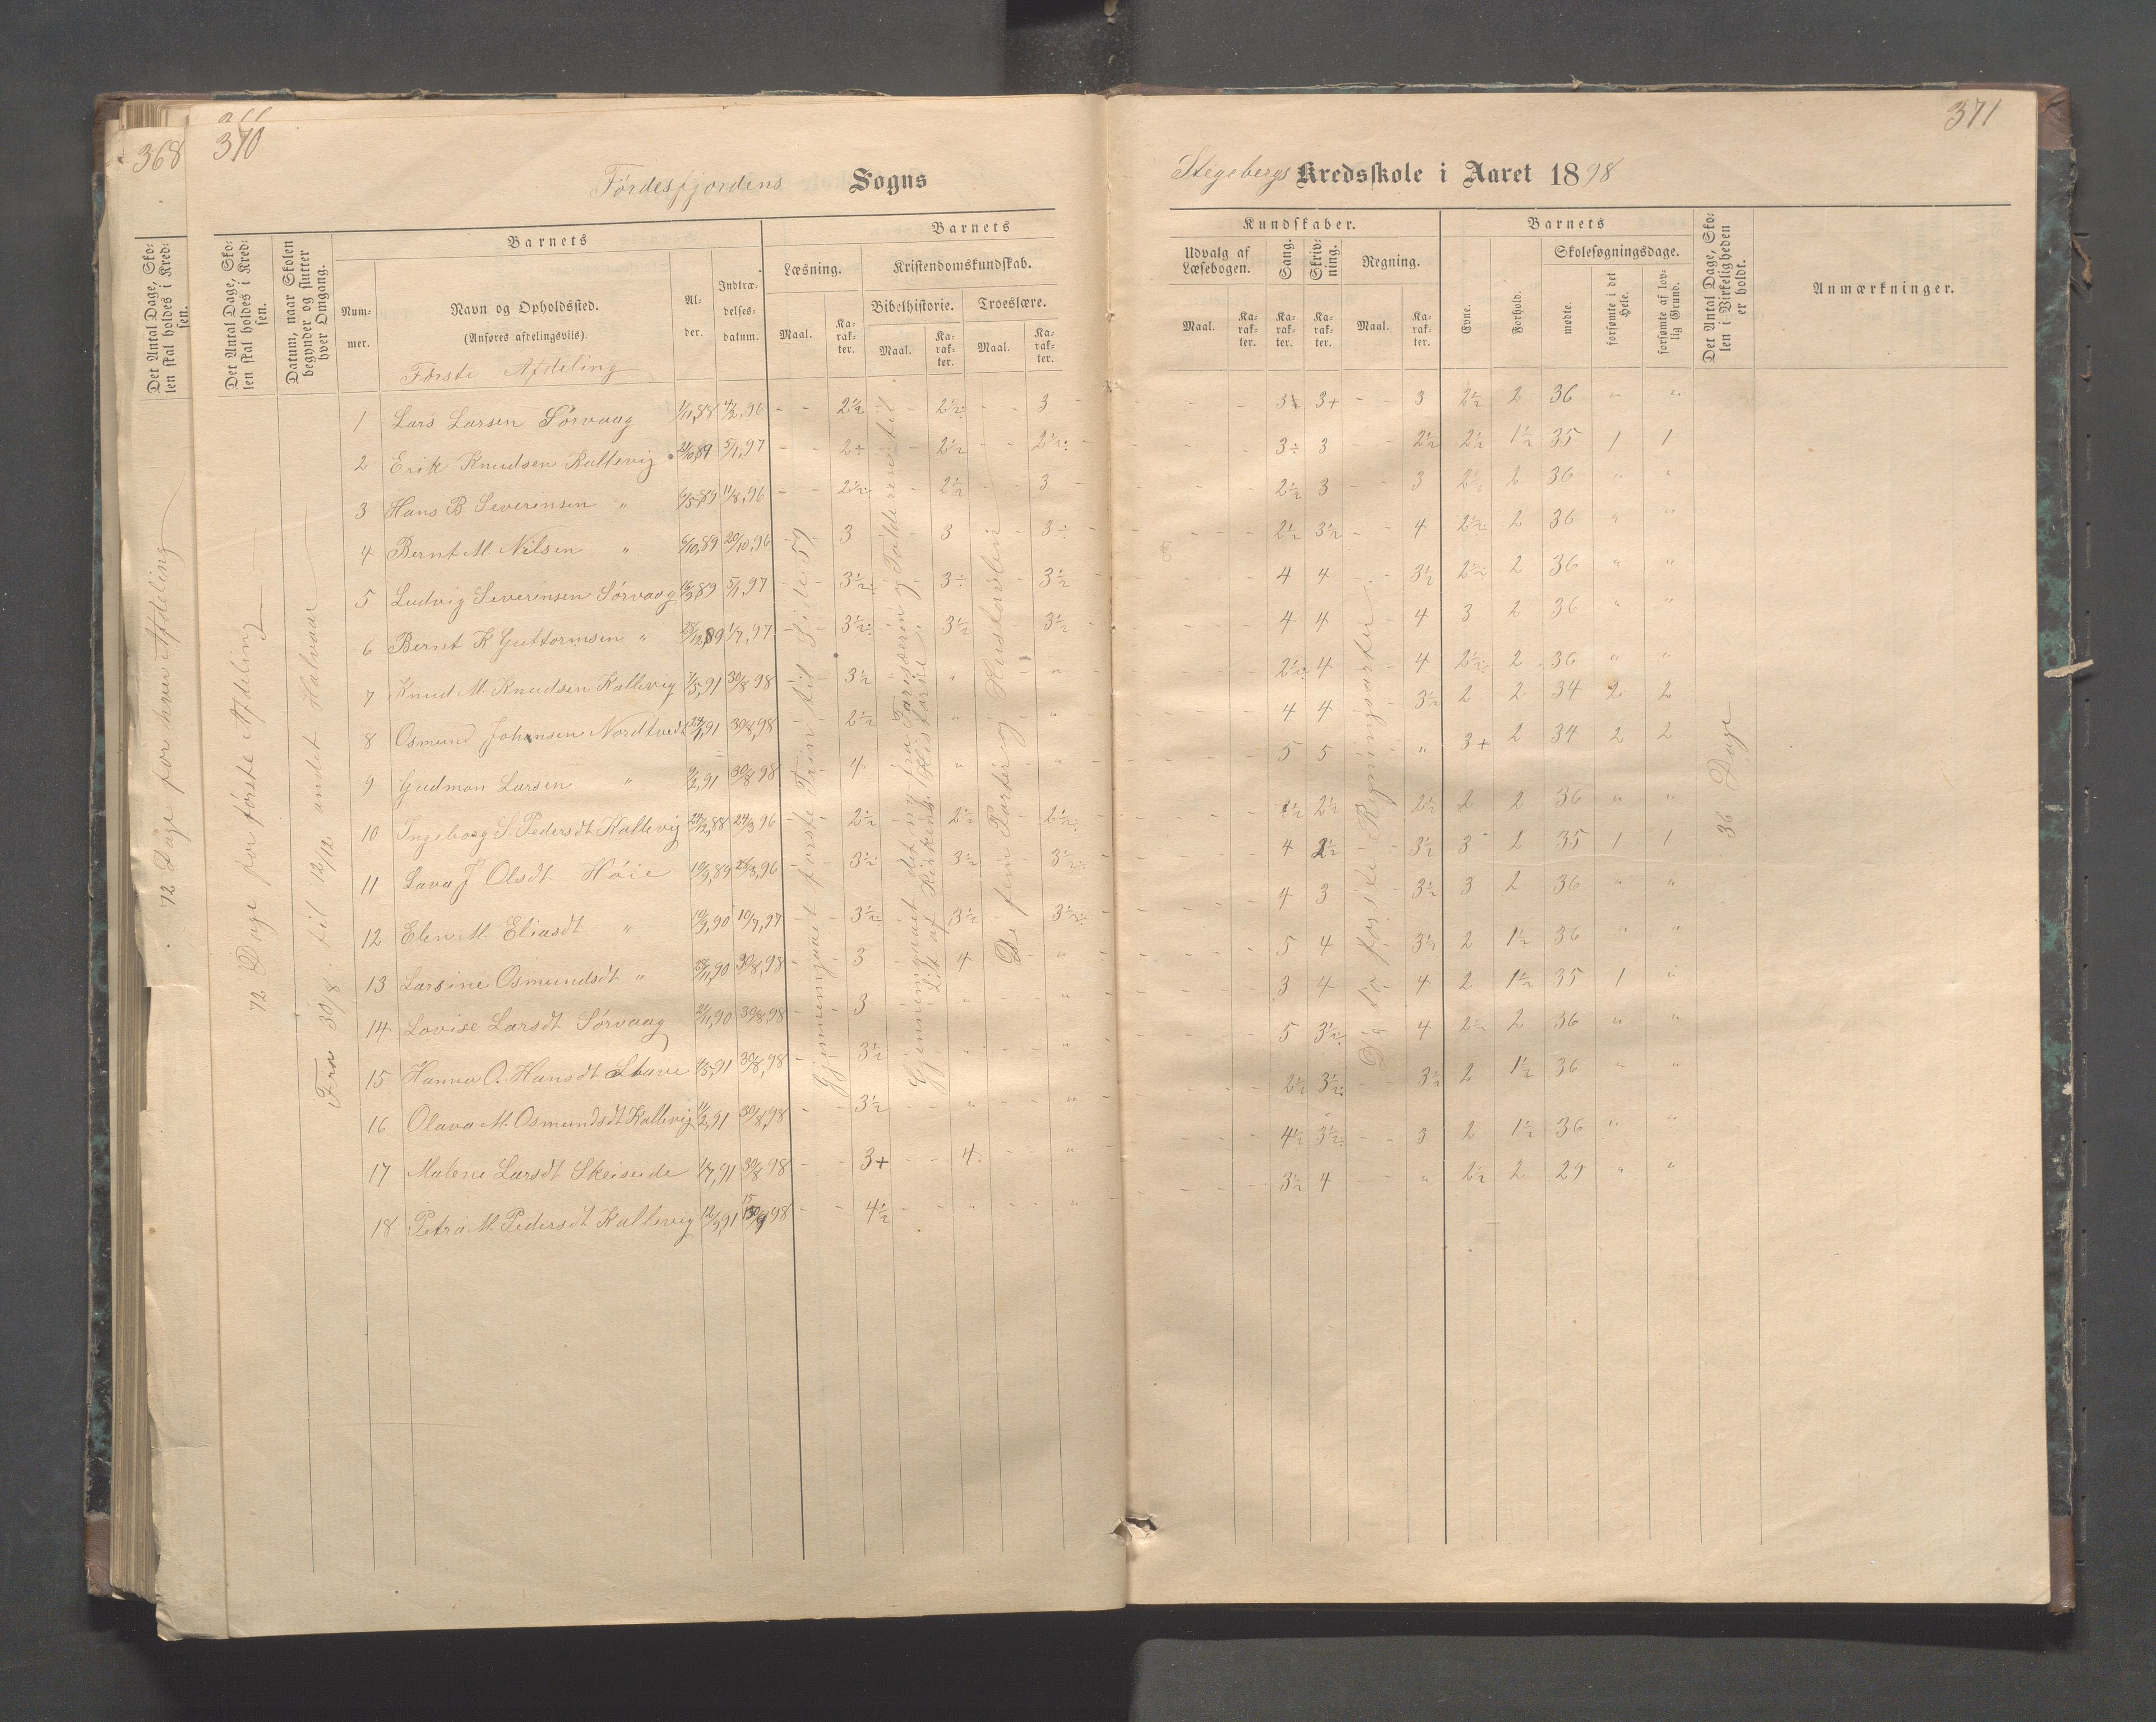 368
370
Førdesfjordens Sogns
Det Antal Dage, Sko-
len skal holdes i Kred-
sen.
Det Antal Dage, Sko-
len skal holdes i Kred-
sen.
Datum, naar Skolen
begynder og slutter
hver Omgang.
Barnets
Num-
mer.
Navn og Opholdssted.
(Anføres afdelingsviis).
Al-
der.
Indtræ-
delses-
datum.
Barnets
Læsning.
Kristendomskundskab.
Bibelhistorie.
Troeslære.
Maal.
Ka-
rak-
ter.
Maal.
Ka-
rak-
ter.
Maal.
Ka-
rak-
ter.
Første Afdeling
72 Dage for hver Afdeling
72 Dage for første Afdeling
Fra 30/8 til 12/12 andet Halvaar
1 Lars Larsen Sørvaag 1/11,88 4/2,96 2½ 2½ 3
2 Erik Knudsen Kallevig 5/1,97 2÷ 2½ 2½
3 Hans B Severinsen " 11/8,96 2½ 2½ 3
4 Bernt M. Nilsen " 6/10,89 20/10,96 3 3 3÷
5 Ludvig Severinsen Sørvaag 5/1,97 3½ 3÷ 3½
6 Bernt K Guttormsen " 1/7,97 3½ 3½ 3½
7 Knud M. Knudsen Kallevig 30/8 98 3½ " "
8 Osmund Johansen Nordtvedt 30/8,98 2½ " "
9 Gudmon Larsen " 30/8 98 4 " "
10 Ingeborg S. Pedersdt Kallevig 24/12,88 24/3 96 2½ 2½ 2½
11 Lava J Olsdt Høie 3½ 3½ 3½
12 Elen M. Eliasdt " 10/7,97 3½ 3½ 3½
13 Larsine Osmundsdt " 30/8,98 3 4 "
14 Lovise Larsdt Sørvaag 30/8 98 3 " "
15 Hanna O. Hansdt Stave 30/8,98 3½ " "
16 Olava M. Osmundsdt Kallevig 11/2,91 30/8,98 3½ " "
17 Malene Larsdt Skeiseide 1/7,91 30/8 98 3+ 4 "
18 Petra M. Pedersdt Kallevig 4½ " "
Gjennemgaaet første Trin til Side 59
Gjennemgaaet det ny fra Farisæeren og Tolderen til
Lidt af Kirkens Historie
De fem Parter og Hustavlen
371
Stegebergs Kredsskole i Aaret 1898
Kundskaber.
Udvalg af
Læsebogen.
Sang.
Skriv-
ning.
Regning.
Maal.
Ka-
rak-
ter.
Ka-
rak-
ter.
Ka-
rak-
ter.
Maal.
Ka-
rak-
ter.
Barnets
Evne.
Forhold.
Skolesøgningsdage.
mødte.
forsømte i det
Hele.
forsømte af lov-
lig Grund.
Det Antal Dage, Sko-
len i Virkeligheden
er holdt.
Anmærkninger.
3+ 3 2½ 2 36 " "
3÷ 3 2½ 2½ 1½ 35 1 1
2½ 3 3 2½ 2 36 " "
2½ 3½ 4 2½ 2 36 " "
4 4 3½ 2½ 2 36 " "
4 4 4 3 2 36 " "
2½ 4 4 2½ 2 36 " "
4 4 3½ 2 2 34 2 2
5 5 " 3+ 2 34 2 2
2½ 2½ 2 2 36 " "
4 2½ 3½ 3 2 35 1 1
4 3 3½ 3 2 36 " "
5 4 3½ 2 1½ 36 " "
3 4 4 2 1½ 35 1 "
5 3½ 4 2½ 2 36 " "
2½ 3½ 3½ 2 1½ 36 " "
4½ 3½ 3 2 1½ 36 " "
3½ 4 " 2½ 2 29 " "
De to første Regningsarter
36 Dage